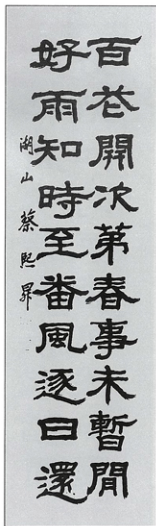 百花開次第春事未暫閒
好雨知時至番風逐日還
湖山蔡熙昇